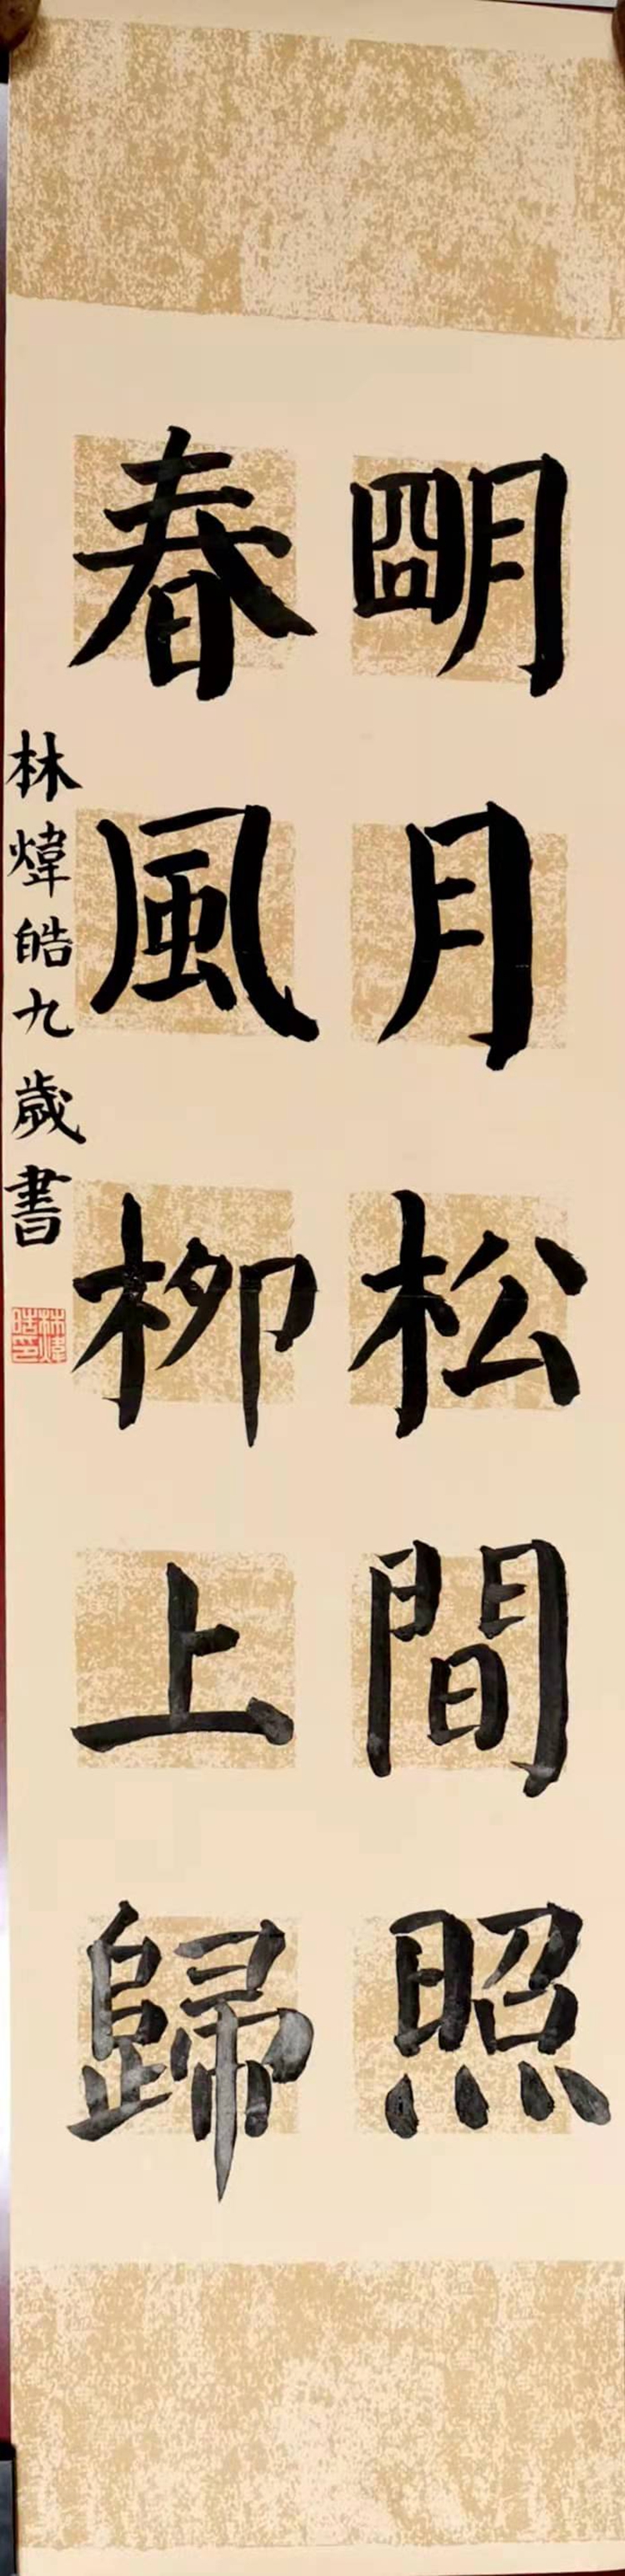 朙月松間照
春風柳上歸
林煒皓九歲書
林煒皓印